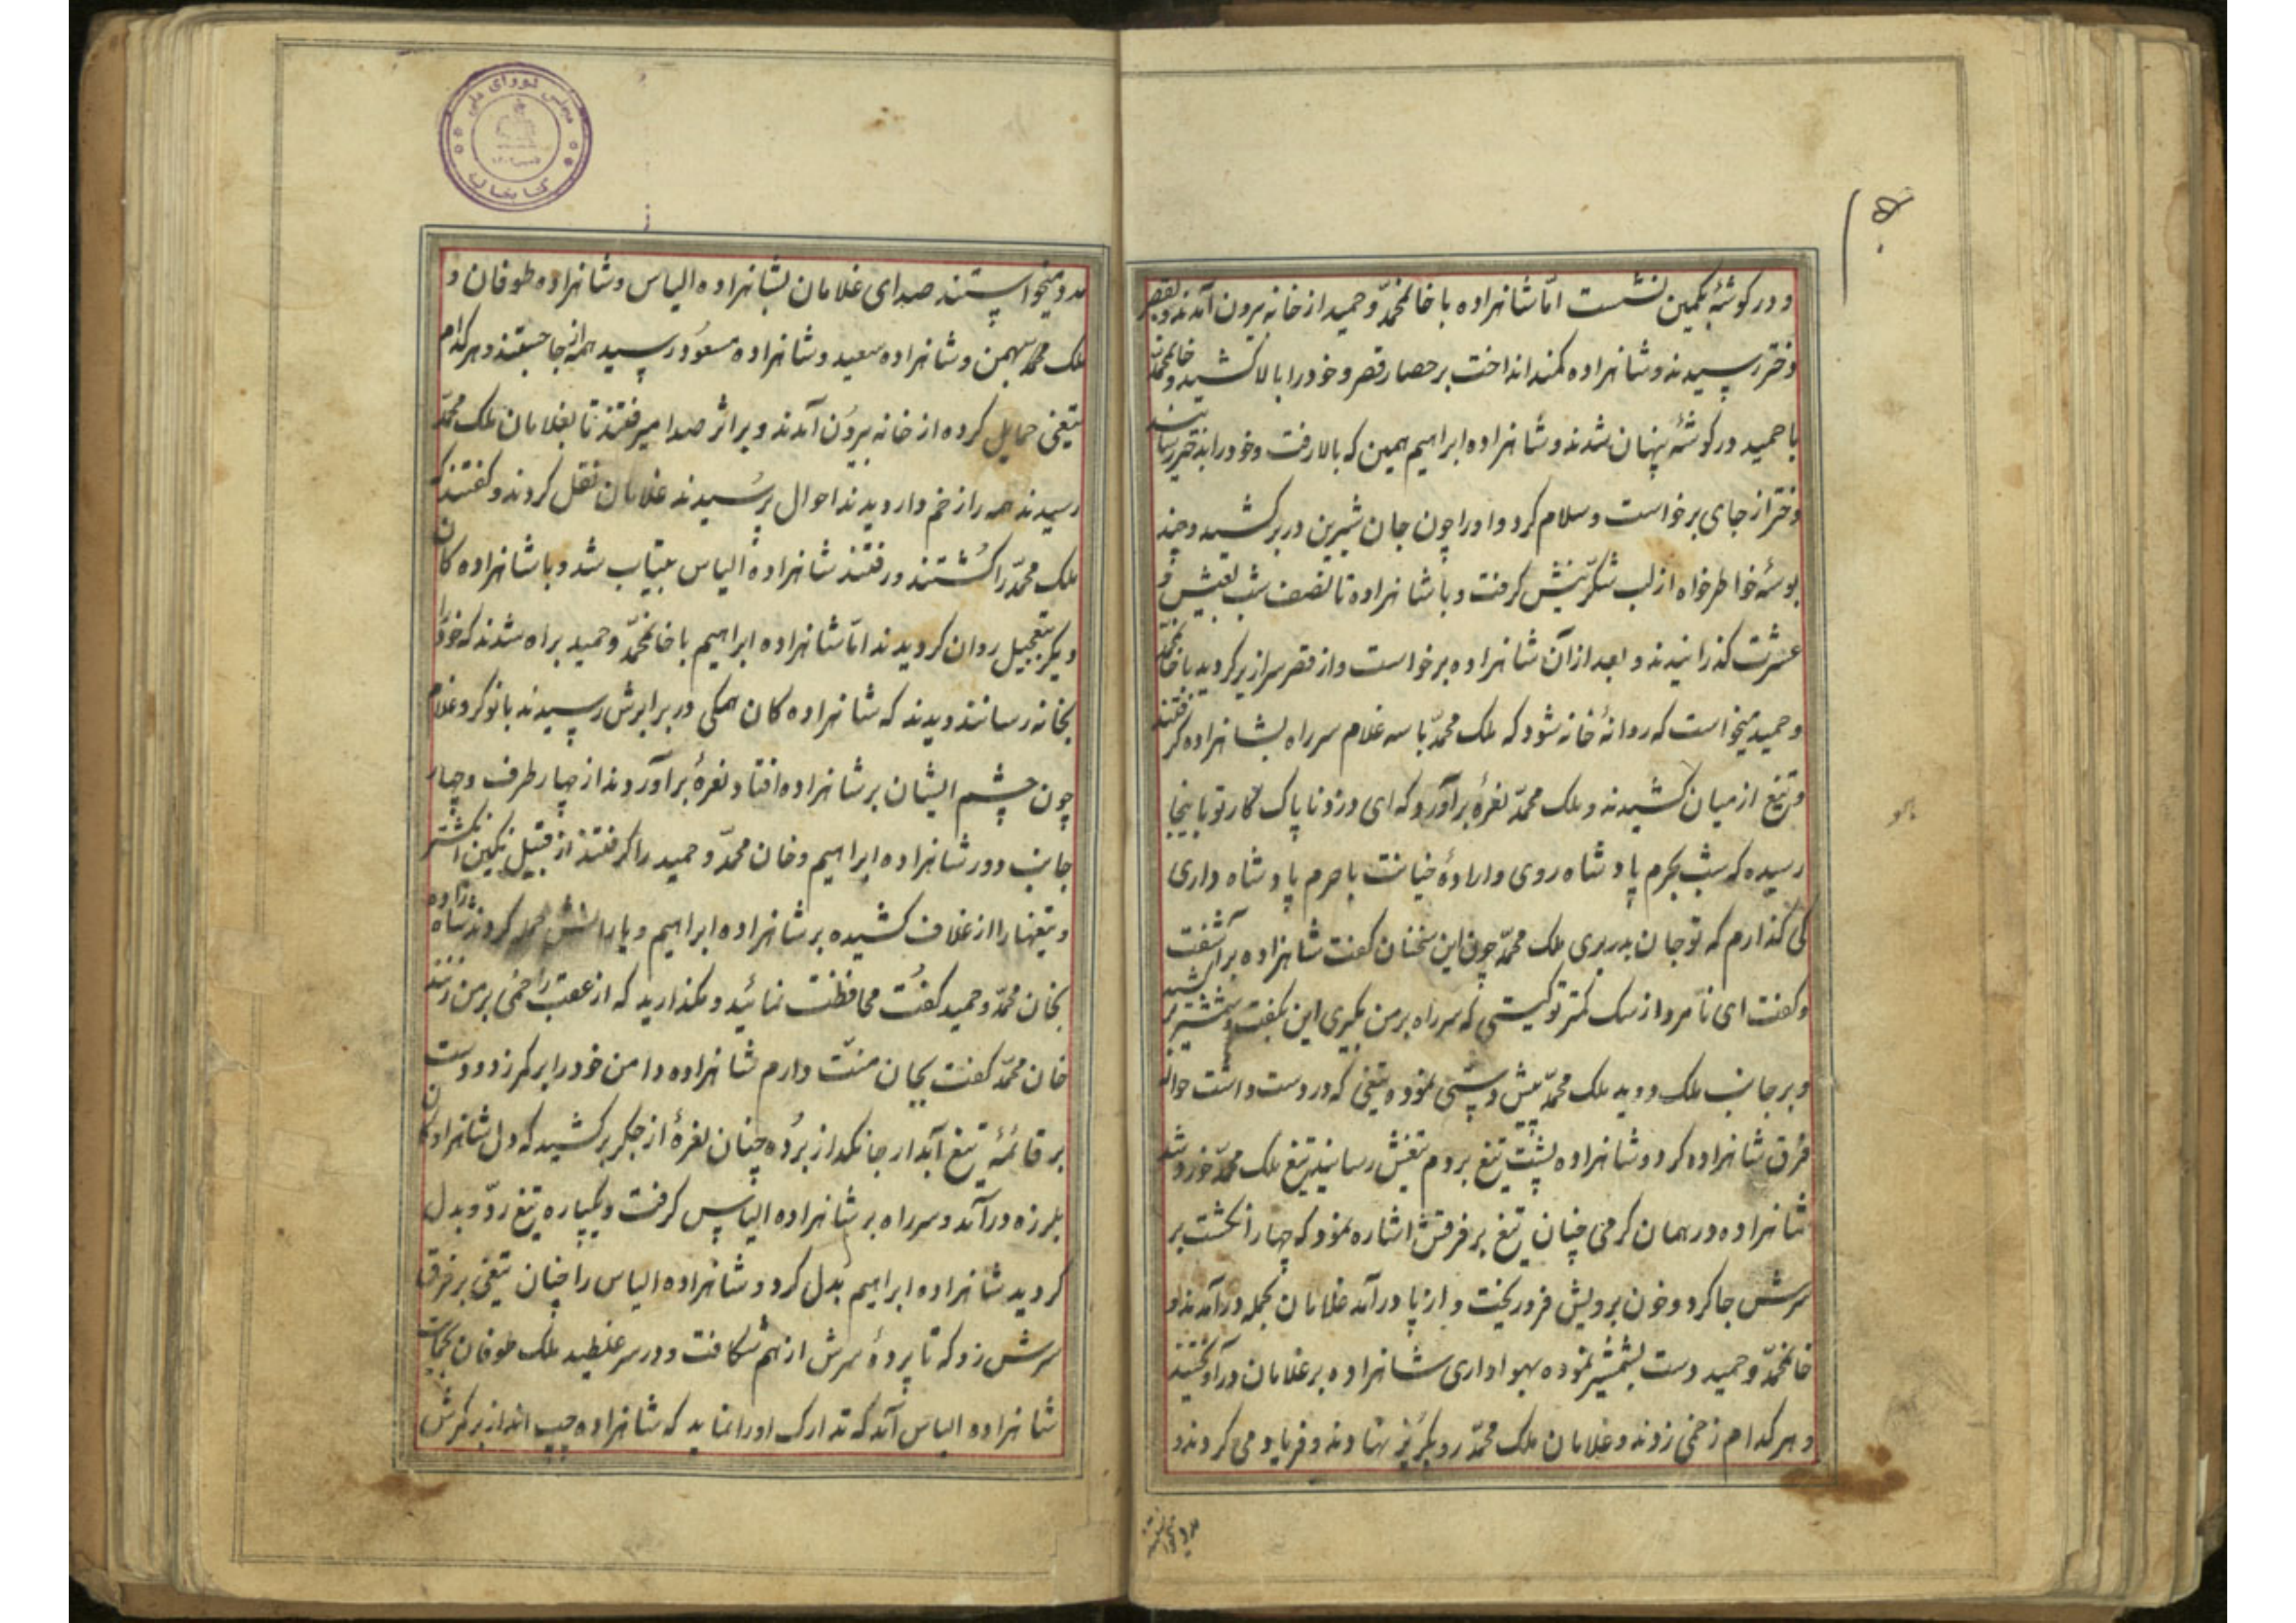 و در کوشهٔ بکمین نشست امّا شاهزاده با خانمحمّد و حمید از خانه بیرون آمدند و بقصر
دختر رسیدند و شاهزاده کمند انداخت بر حصار قصر و خود را بالا کشید و خانمحمّد
با حمید در کوشهٔ پنهان شدند و شاهزاده ابراهیم همین که بالا رفت و خود را بدختر رسانید
دختر از جای برخواست و سلام کرد و او را چون جان شیرین در بر کشید و چند
بوسهٔ خواطرخواه از لب شکّرینش کرفت و با شاهزاده تا نصف شب بعیش و
عشرت کذرانیدند و بعد از آن شاهزاده برخواست و از قصر سرازیر کردید با خانمحمّد
و حمید میخواست که روانهٔ خانه شود که ملک محمّد با سه غلام سر راه بشاهزاده کرفتند
و تیغ از میان کشیدند و ملک محمّد نعرهٔ برآورد که ای دزد ناپاک کار تو باینجا
رسیده که شب بحرم پادشاه روی و ارادهٔ خیانت با حرم پادشاه داری
کی کذارم که تو جان بدر بری ملک محمّد چون این سخنان کفت شاهزاده برآشفت
و کفت ای نامرد از سک کمتر تو کیستی که سر راه بر من بکیری این بکفت و شمشیر بر کشید
و بر جانب ملک دوید ملک محمّد پیش دستی نموده تیغی که در دست داشت حوالهٔ
فرق شاهزاده کرد و شاهزاده پشت تیغ بر دم تیغش رسانید تیغ ملک محمّد خورد شد
شاهزاده در همان کرمی چنان تیغ بر فرقش اشاره نمود که چهار انکشت بر
سرش جا کرد و خون برویش فرو ریخت و از پا درآمد غلامان بحمله درآمدند و
خانمحمّد و حمید دست بشمشیر نموده بهواداری شاهزاده بر غلامان درآویختند
و هر کدام زخمی زدند و غلامان ملک محمّد رو بکریز نهادند و فریاد می کردند و
مدد میخواستند صدای غلامان بشاهزاده الیاس و شاهزاده طوفان و
ملک محمد بهمن و شاهزاده سعید و شاهزاده مسعود رسید همه از جا جستند و هر کدام
تیغی حمایل کرده از خانه بیرون آمدند و بر اثر صدا میرفتند تا بغلامان ملک محمّد
رسیدند همه را زخم دار دیدند احوال پرسیدند غلامان نقل کردند و کفتند که
ملک محمّد را کشتند و رفتند شاهزاده الیاس بیتاب شد و با شاهزاده کان
دیکر بتعجیل روان کردیدند امّا شاهزاده ابراهیم با خانمحمّد و حمید براه شدند که خود را
بخانه رسانند دیدند که شاهزاده کان همکی در برابرش رسیدند با نوکر و غلام
چون چشم ایشان بر شاهزاده افتاد نعرهٔ برآوردند از چهار طرف و چهار
جانب دور شاهزاده ابراهیم و خان محمّد و حمید را کرفتند از قبیل نکین انکشتر
و تیغها را از غلاف کشیده بر شاهزاده ابراهیم و یارانش حمله کردند شاهزاده
بخان محمّد و حمید کفت محافظت نمائید و مکذارید که از عقب زخمی بر من زنند
خان محمّد کفت بجان منّت دارم شاهزاده دامن خود را بر کمر زد و دست
بر قائمهٔ تیغ آبدار جانکداز برده چنان نعرهٔ از جکر برکشید که دل شاهزاده کان
بلرزه درآمد و سر راه بر شاهزاده الیاس کرفت و یکپاره تیغ ردّ و بدل
کردید شاهزاده ابراهیم بدل کرد و شاهزاده الیاس را چنان تیغی بر فرق
سرش زد که تا پردهٔ سرش از هم شکافت و در سر غلطید ملک طوفان بحمایت
شاهزاده الیاس آمد که تدارک او را نماید که شاهزاده چپ انداز بر کمرش